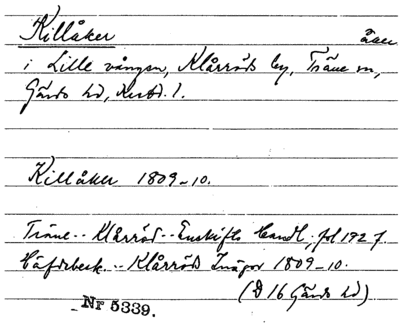 Killåker åker
i Lille vången, Klårröds by, Träne sn,
Gärds hd, Krstd. l.
Killåker 1809-10.
Träne - Klårröd - Enskifts Handl., fol 192 f.
Häfdebeskr. - Klårröds Inägor 1809-10.
(D 16 Gärds hd)
Nr 5339.